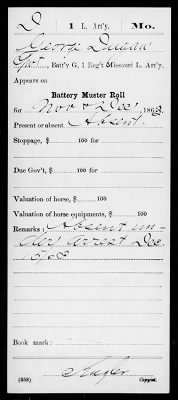 D | 1 L. Art'y. | Mo.
George Duncan
Pvt., Batt'y G, 1 Reg't Missouri L. Art'y.
Appears on
Battery Muster Roll
for Nov & Dec, 1863.
Present or absent Absent.
Stoppage, $ 100 for
Due Gov't, $ 100 for
Valuation of horse, $ 100
Valuation of horse equipments, $ 100
Remarks: Absent un-
der arrest Dec
Book mark:
(858)
Copyist.